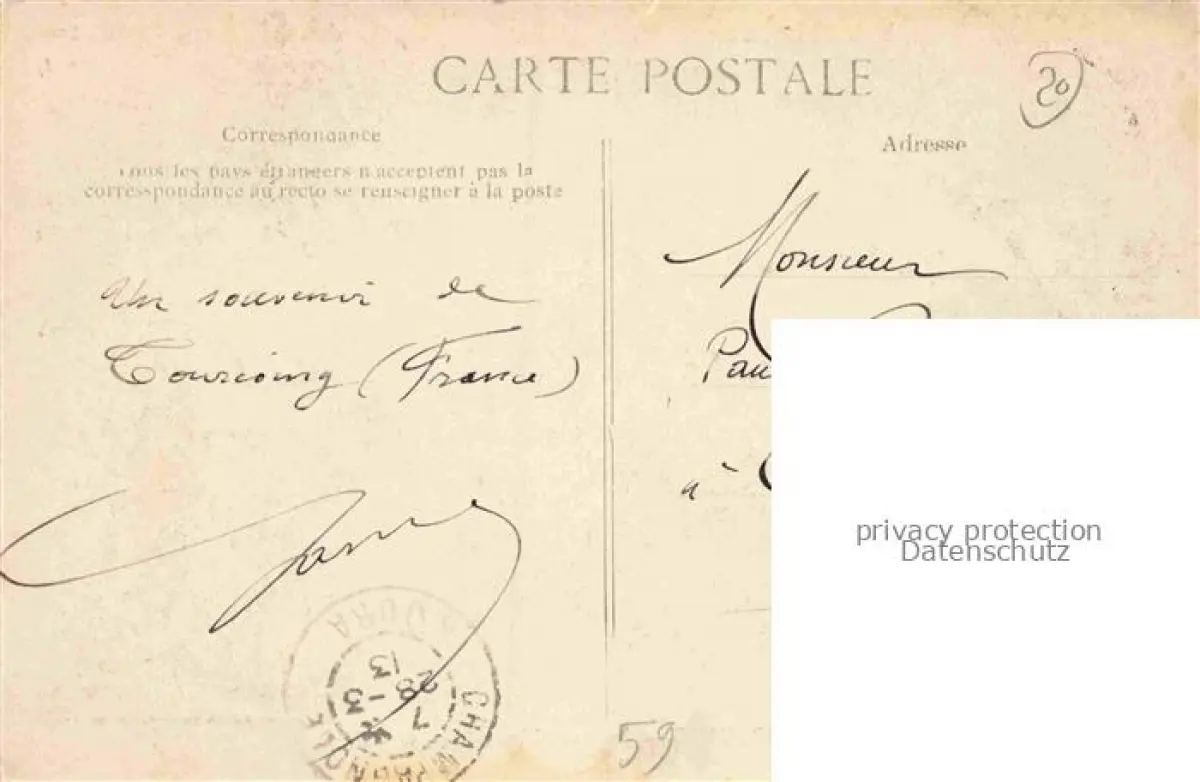 CARTE POSTALE
20
Correspondance
Tous les pays étrangers n'acceptent pas la
correspondance au recto se renseigner à la poste
Adresse
Un souvenir de
Tourcoing (France)
Monsieur
Pau
à
JURA
CHAMPAGNOLE
7
28-3
13
59
privacy protection
Datenschutz